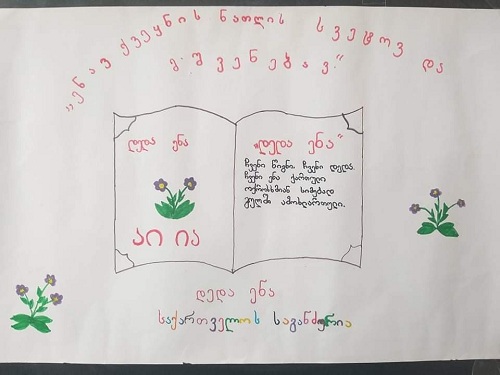 „ენავ ქვეყნის ნათლის სვეტოვ და
მშვენებავ.“
დედა ენა
აი ია
„დედა ენა“
ჩვენი წიგნი. ჩვენი დედა.
ჩვენი ენა ქართული
ოქროსხმიან სიმებად
გულში ამოხლართული.
დედა ენა
საქართველოს საგანძურია